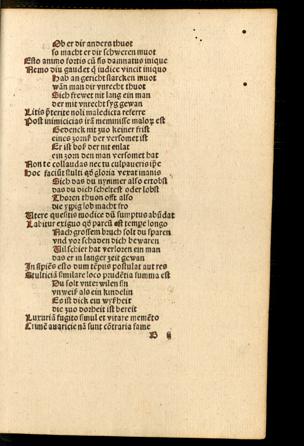 Ob er dir anders thuot
so macht er dir schweren muot
Esto animo fortis cū sis damnatus inique
Nemo diu gaudet q̄ iudice vincit iniquo
Hab an gericht starcken muot
wān man dir vnrecht thuot
Sich frewet nit lang ein man
der mit vnrecht syg gewan
Litis p̄terite noli maledicta referre
Post inimicicias irā meminisse maloꝝ est
Gedenck nit zuo keiner frist
eines zorns der versomet ist
Er ist boß der nit enlat
ein zorn den man versomet hat
Non te collaudes nec tu culpaueris ip̄e
Hoc faciūt stulti qō gloria vexat inanis
Sich das du nymmer also ertobst
das du dich scheltest oder lobst
Thoren thuon offt also
die ypig lob macht fro
Utere quesitis modice dū sumptus abūdat
Labitur exiguo qō partū est tempe longo
Nach grossem bruch solt du sparen
vnd vor schaden dich bewaren
Vil schier hat verloren ein man
das er in langer zeit gewan
In sipiēs esto dum tēpus postulat aut res
Stulticiā similare loco prudētia summa est
Du solt vnter wilen sin
vnweiß als ein kindelin
Es ist dick ein wyßheit
die zuo dorheit ist bereit
Luxuriā fugito simul et vitare memēto
Crimē auaricie nā sunt cōtraria fame
B